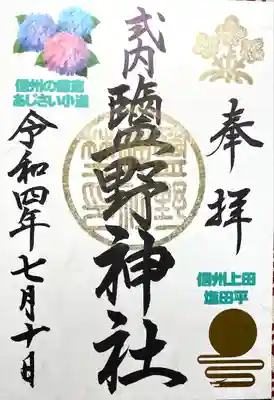 奉拝
信州上田
塩田平
式内
鹽野神社
信州の鎌倉
あじさい小道
令和四年七月十日